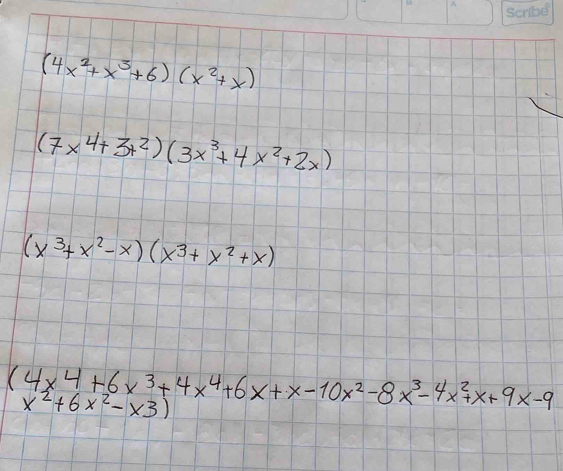 Scribe
(4x²+x³+6)(x²+x)
(7x⁴+3+²)(3x³+4x²+2x)
(x³+x²-x)(x³+x²+x)
(4x⁴+6x³+4x⁴+6x+x-10x²-8x³-4x²+x+9x-9
x²+6x²-x3)